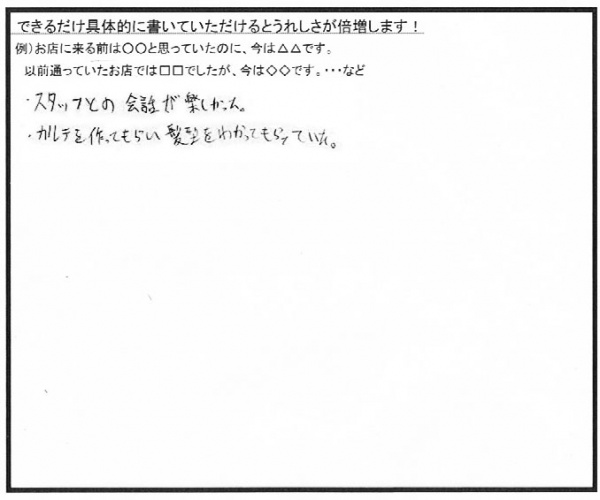 できるだけ具体的に書いていただけるとうれしさが倍増します！
例）お店に来る前は○○と思っていたのに、今は△△です。
以前通っていたお店では□□でしたが、今は◇◇です。・・・など
・スタッフとの会話が楽しかった。
・カルテを作ってもらい髪型をわかってもらっていた。